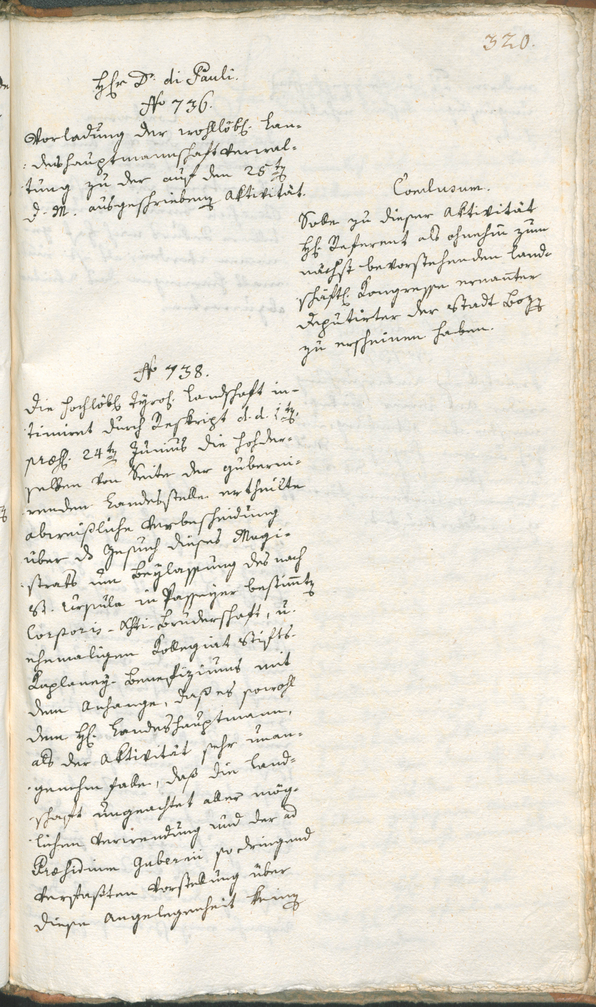 320.
Hhr Dr. di Pauli.
No 736.
Vorladung der wohllöbl. Lan-
deshauptmannschaftverwal-
tung zu der auf den 25ten
d. M. ausgeschriebenen Aktivität.
Conclusum.
Habe zu dieser Aktivität
Hh. Referent als ohnehin zum
nächst bevorstehenden land-
schäftl. Kongresse ernannter
Deputirter der Stadt Bozen
zu erscheinen haben.
No 738.
Die hochlöbl. Tyrol. Landschaft in-
timirt durch Reskript d. d. 1ten
præs. 24ten Junius die hochder-
selben von Seite der guberni-
renden Landesstelle ertheilte
abweißliche Verbescheidung
über das Gesuch dieses Magi-
strats um Beylassung des nach
St. Ursula in Passeyer bestimmten
Corporis-Xsti-Bruderschaft, u.
ehemaligen Kollegiat Stifts-
Kaplaney-Benefiziums mit
dem Anhange, daß es sowohl
dem Hh. Landeshauptmann,
als der Aktivität sehr unan-
genehm falle, daß die Land-
schaft ungeachtet aller mög-
lichen Verwendung und der ad
Præsidium Gubernii so dringend
verfaßten Vorstellung über
diese Angelegenheit keine